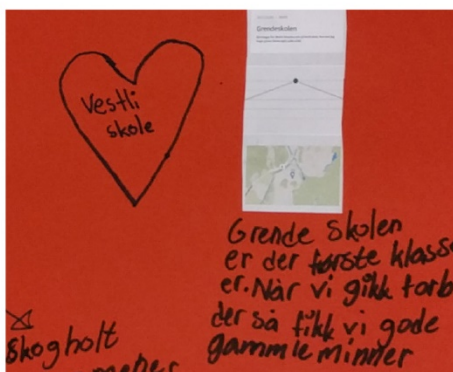 Grendeskolen
Vestli
skole
Grende skolen
er der første klasse
er. Når vi gikk forb
der så fikk vi gode
gammle minner
Skogholt